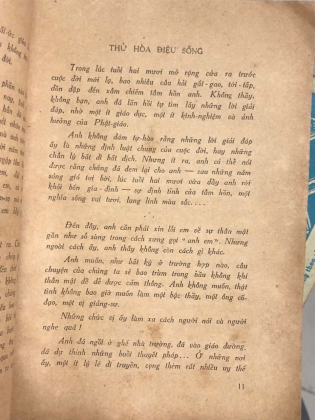 THỬ HÒA ĐIỆU SỐNG
Trong lúc tuổi hai mươi mở rộng cửa ra trước
cuộc đời mới lạ, bao nhiêu câu hỏi gắt-gao, tới-tấp,
dồn dập đến xâm chiếm tâm hồn anh. Không thầy,
không bạn, anh đã lần hồi tự tìm lấy những lời giải
đáp, nhờ một ít giáo dục, một ít kinh-nghiệm và ảnh
hưởng của Phật-giáo.
Anh không dám tự-hào rằng những lời giải đáp
ấy là những định luật chung của cuộc đời, hay những
chân lý bất di bất dịch. Nhưng ít ra, anh có thể nói
được rằng chúng đã đem lại cho anh — sau những năm
sóng gió tơi bời, lúc tuổi hai mươi vừa đẩy anh rời
khỏi bến gia-đình — sự định tỉnh của tâm hồn, một
nghĩa sống vui tươi, lung linh màu sắc....
Đến đây, anh cần phải xin lỗi em về sự thân mật
gần như sỗ sàng trong cách xưng gọi "anh em". Nhưng
ngoài cách ấy, anh thấy không còn cách gì khác.
Anh muốn, như bất kỳ ở trường hợp nào, câu
chuyện của chúng ta sẽ bao trùm trong bầu không khí
thân mật để dễ được cảm thông. Anh không muốn, thật
tình không bao giờ muốn làm một bậc thầy, một ông cố-
đạo, một vị giảng-sư.
Những chức vị ấy làm xa cách người nói và người
nghe quá !
Anh đã ngồi ở ghế nhà trường, đã vào giáo đường,
đã dự thính những buổi thuyết pháp... Ở những nơi
ấy, một ít lý lẽ di truyền, cộng thêm rất nhiều uy thế
11